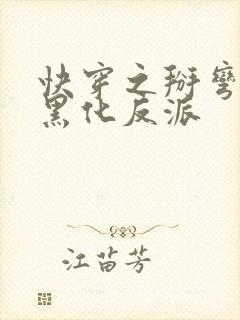 快穿之掰弯
黑化反派
江苗芳